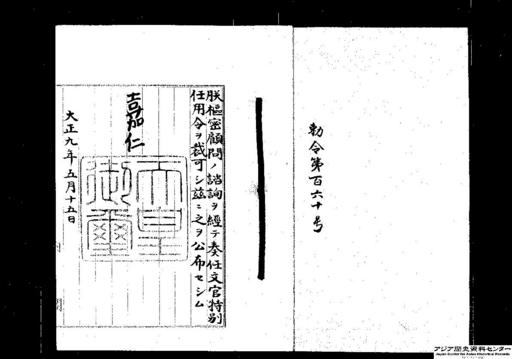 勅令第百六十号
朕樞密顧問ノ諮詢ヲ經テ奏任文官特別
任用令ヲ裁可シ茲ニ之ヲ公布セシム
嘉仁
天皇
御璽
大正九年五月十五日
アジア歴史資料センター
Japan Center for Asian Historical Records